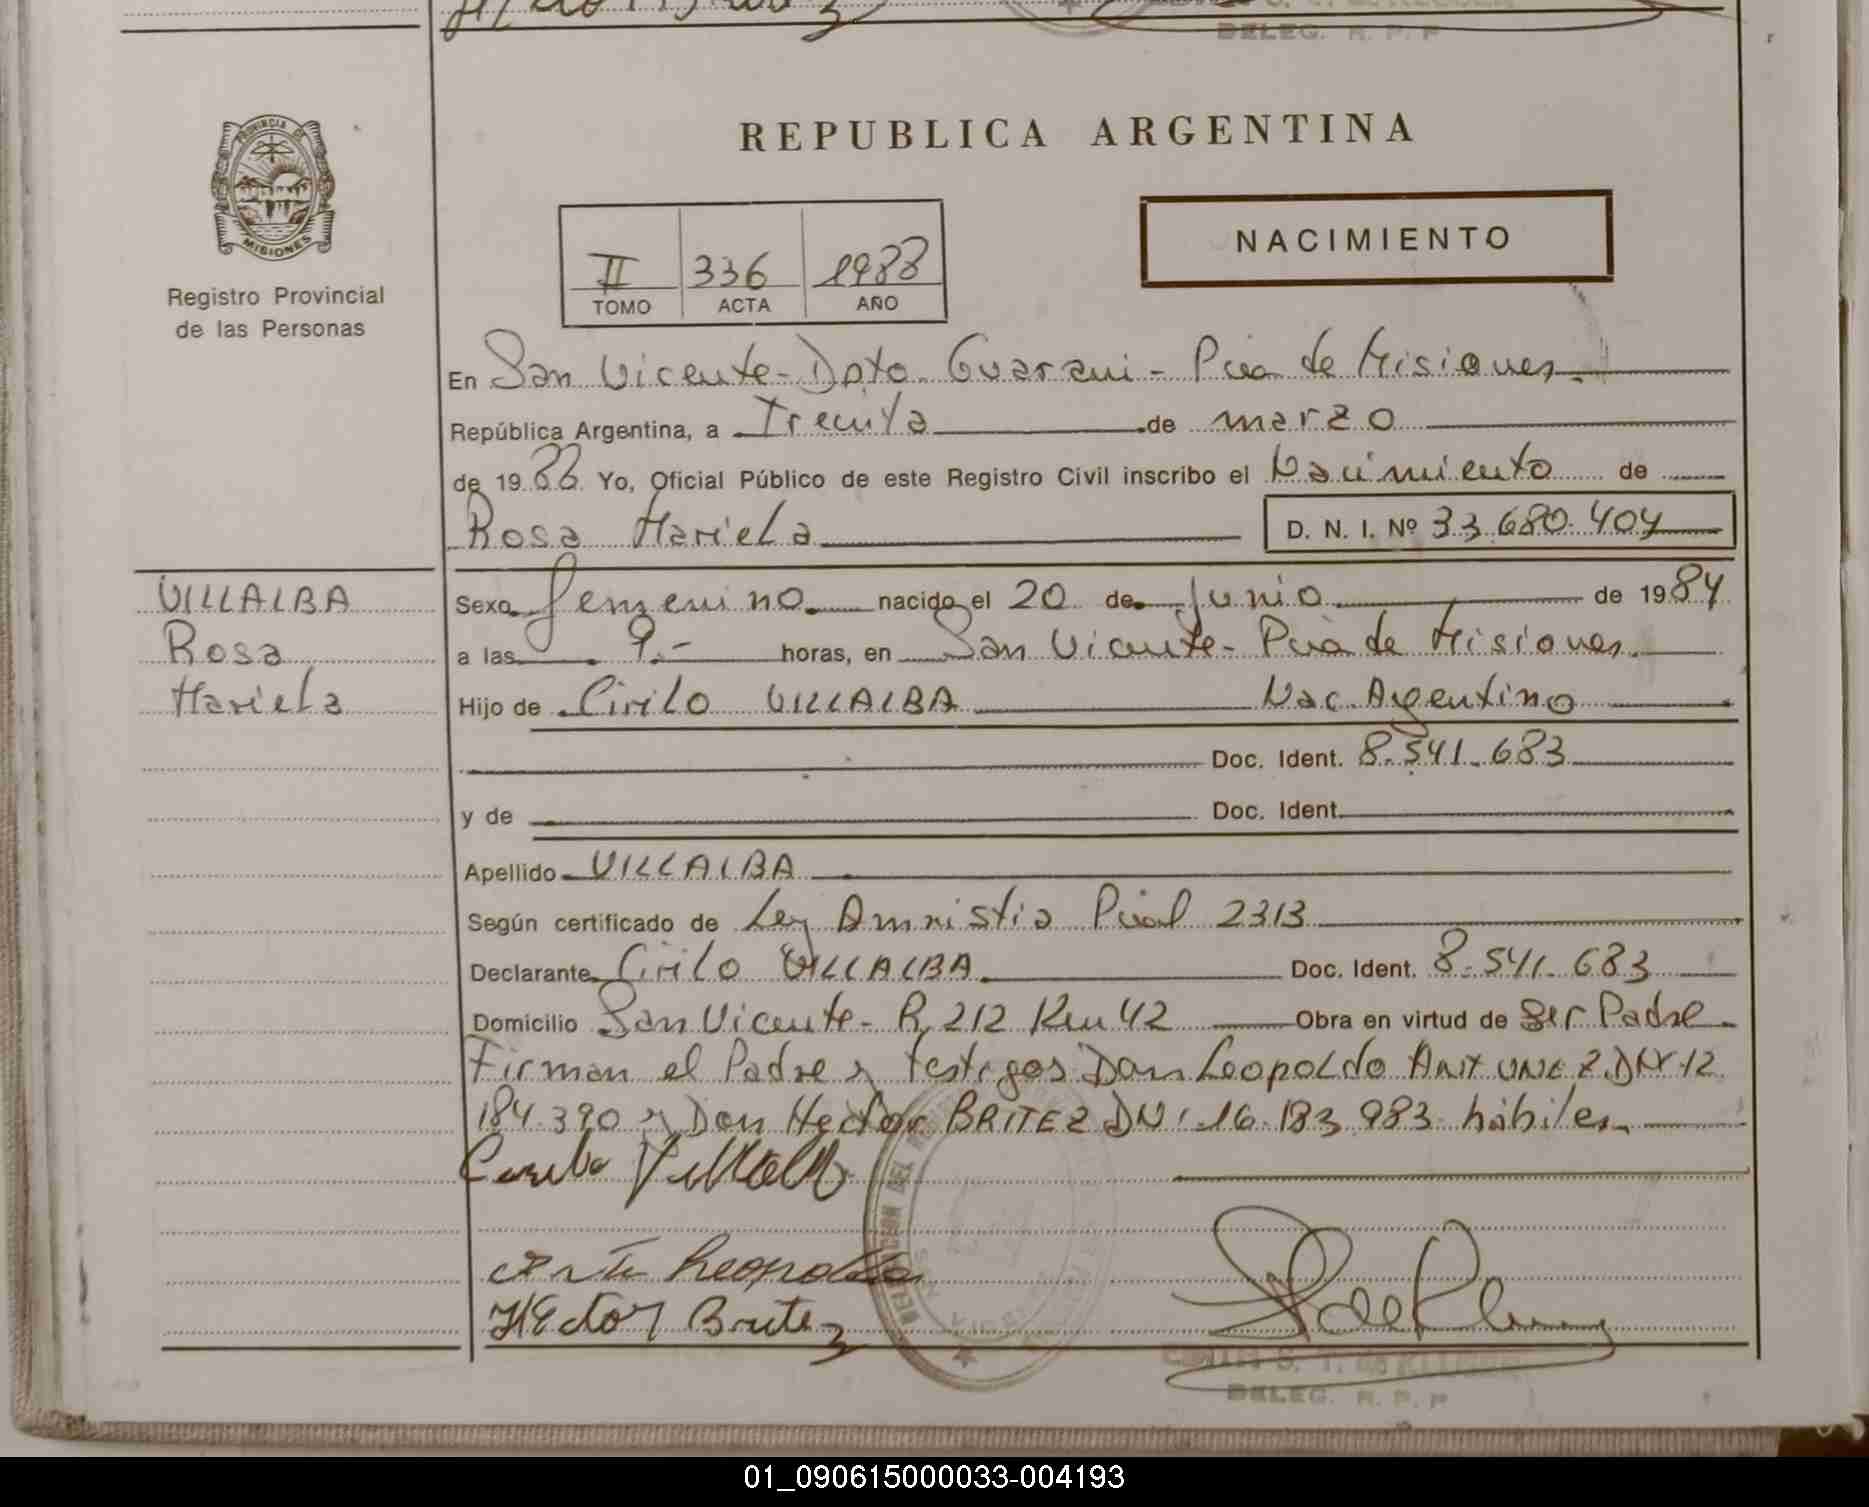 DELEG. R. P. P
PROVINCIA DE
MISIONES
Registro Provincial
de las Personas
REPUBLICA ARGENTINA
NACIMIENTO
II 336 1988
TOMO ACTA AÑO
En San Vicente - Dpto. Guarani - Pcia de Misiones.
República Argentina, a Treinta de marzo
de 1988 Yo, Oficial Público de este Registro Civil inscribo el Nacimiento de
Rosa Mariela D. N. I. Nº 33.680.404
VILLALBA
Rosa
Mariela
Sexo Femenino nacido el 20 de Junio de 1984
a las 9.- horas, en San Vicente - Pcia de Misiones.
Hijo de Cirilo VILLALBA Nac. Argentino
Doc. Ident. 8.541.683
y de Doc. Ident.
Apellido VILLALBA
Según certificado de Ley Amnistia Pcial 2313
Declarante Cirilo VILLALBA Doc. Ident. 8.541.683
Domicilio San Vicente - R 212 Km 42 Obra en virtud de Ser Padre
Firman el Padre y testigos Don Leopoldo ANTUNEZ DNI 12
184.390 y Don Hector BRITEZ DNI 16.183.983 hábiles
Villalba
Leopoldo
HEctor Britez
DELEG. R. P. P
01_090615000033-004193